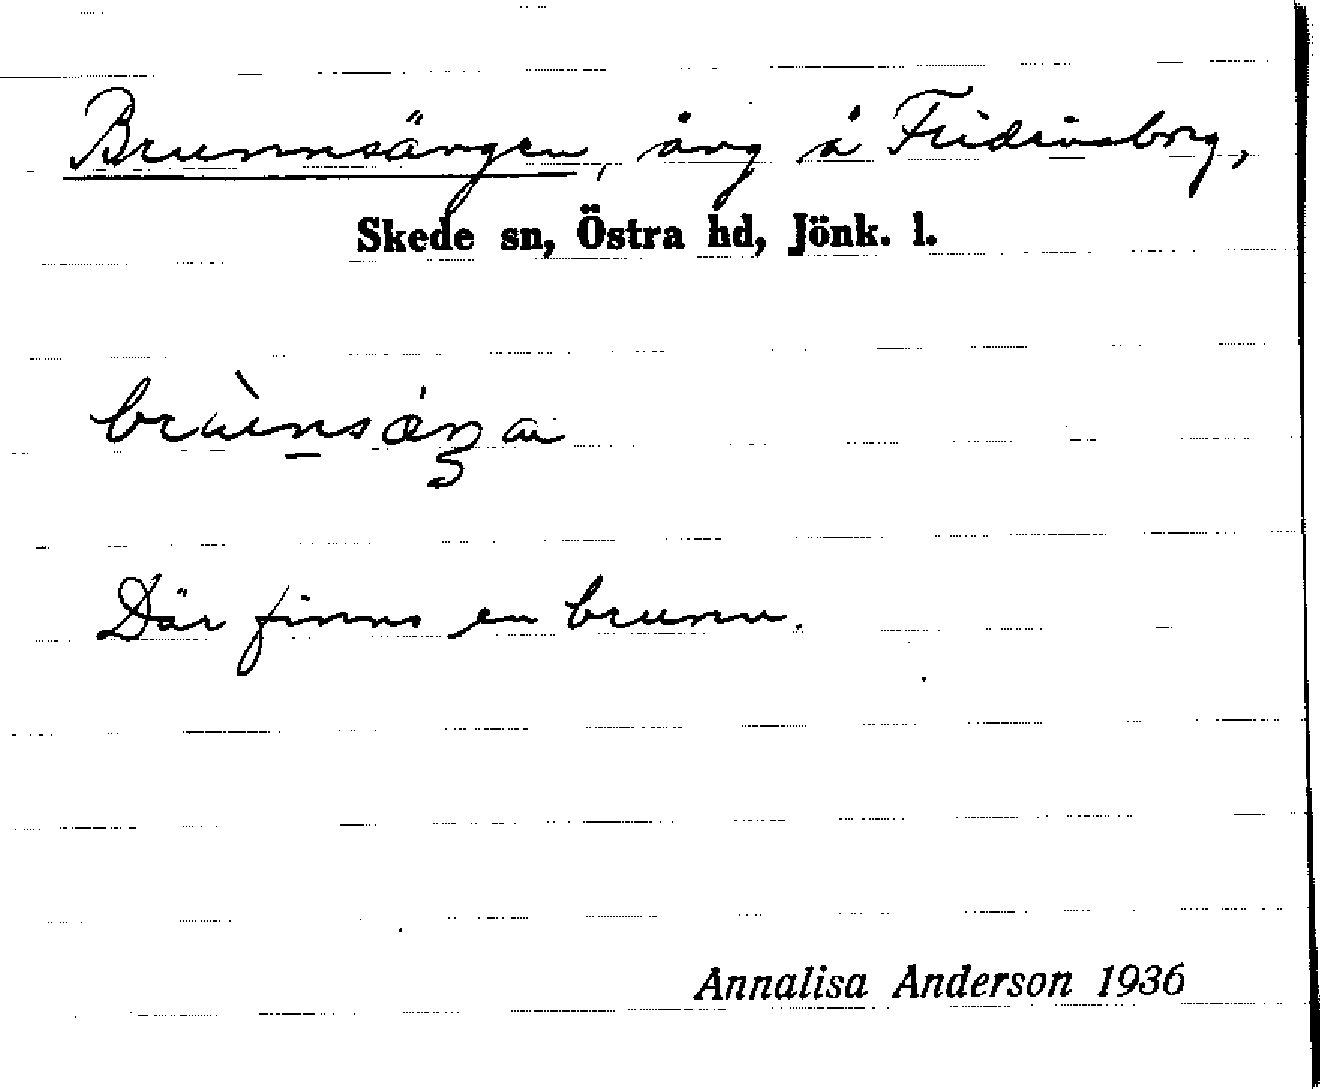 Brunnsängen, äng å Fridensborg,
Skede sn, Östra hd, Jönk. l.
Där finns en brunn.
Annalisa Anderson 1936